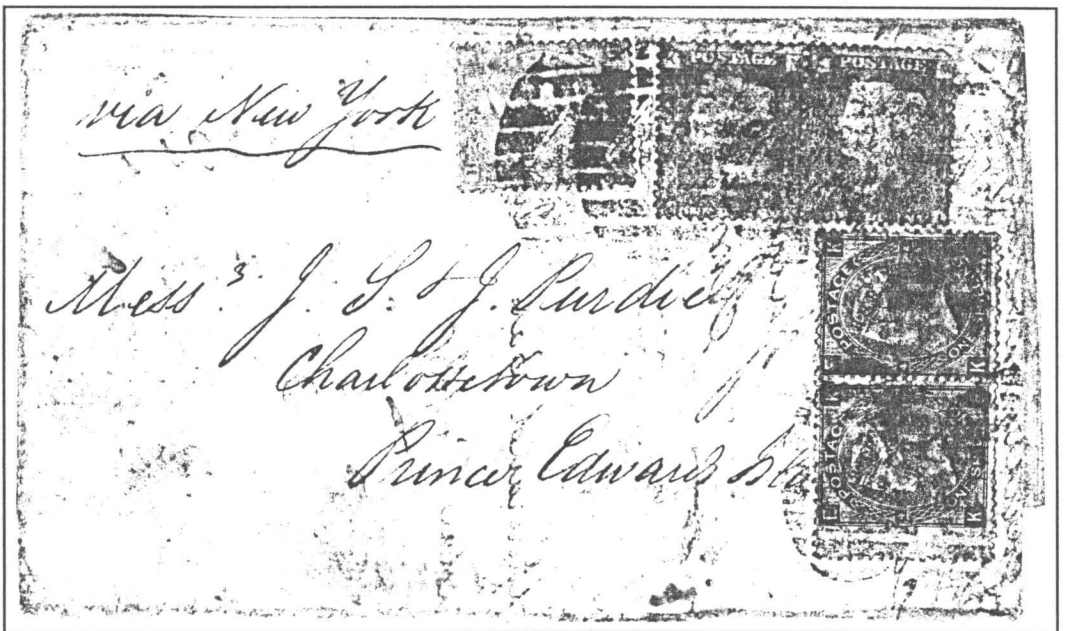 via New York
POSTAGE
POSTAGE
Messrs. J. S. & J. Purdie
Charlottetown
Prince Edward Isla
POSTAGE
POSTAGE